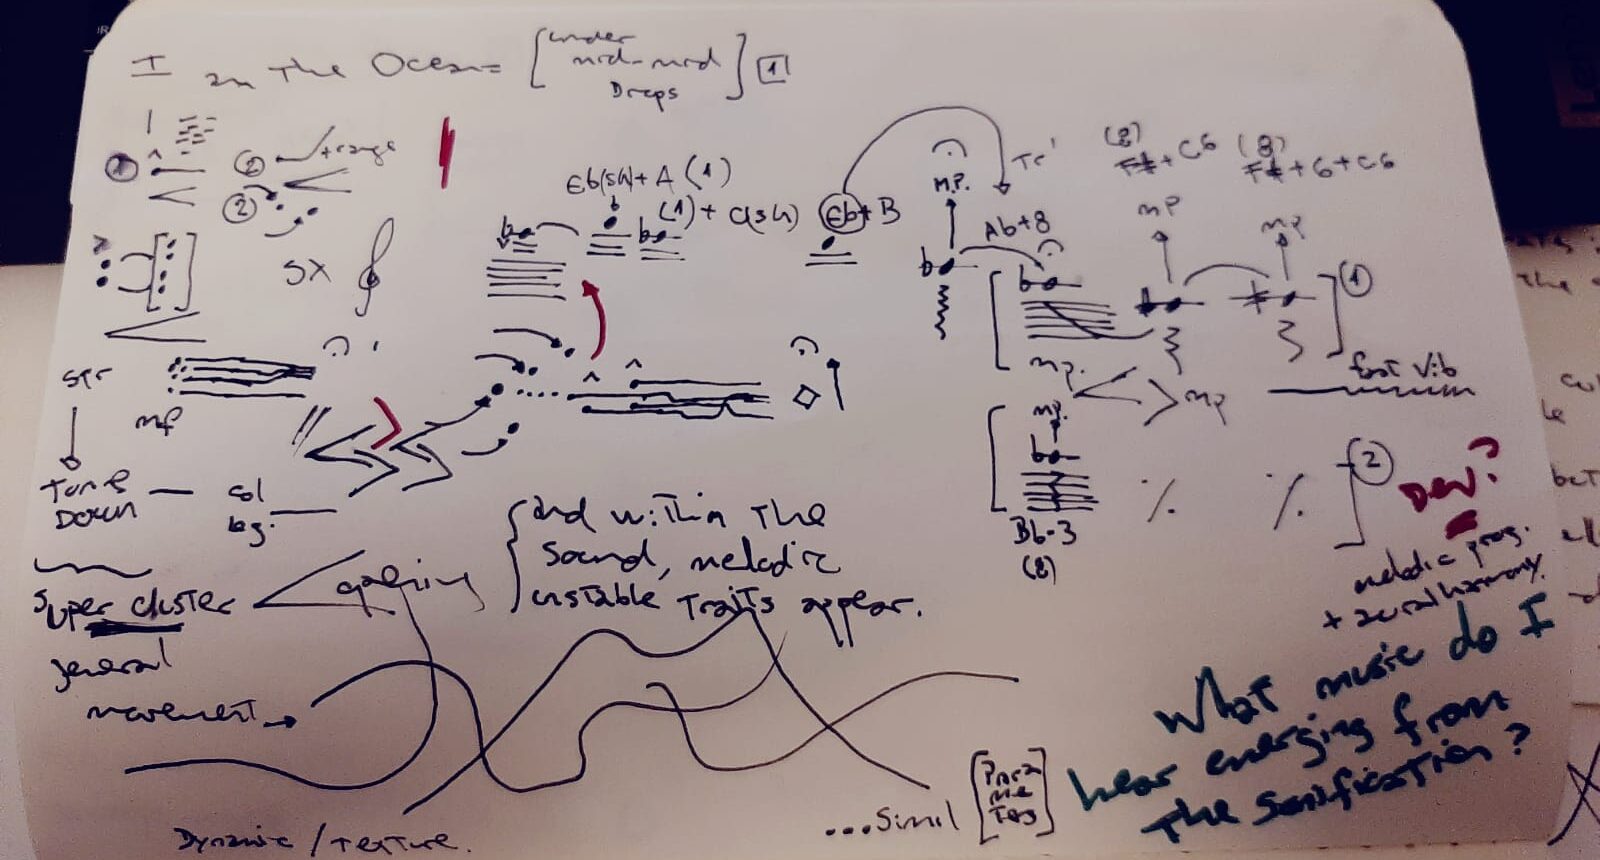 I
in The Ocean = [under
mid-mid
Drops] 1
1
2
+ range
2
SX
Eb(SH) + A (1)
(1) + C(SH)
Eb + B
M.P.
Tr
Ab+8
(8)
F# + C6
(8)
F# + G + C6
MP
MP
1
str
mf
Tone
Down
col
leg.
mp.
mp
fast Vib
mp.
Bb-3
(8)
2
Dev?
melodic prog.
+ aural harmony.
Super cluster
general
movement
and within The
Sound, melodic
unstable Traits appear.
What music do I
hear emerging from
The Sonification?
...Simil [Para
me
Ters]
Dynamic / Texture.